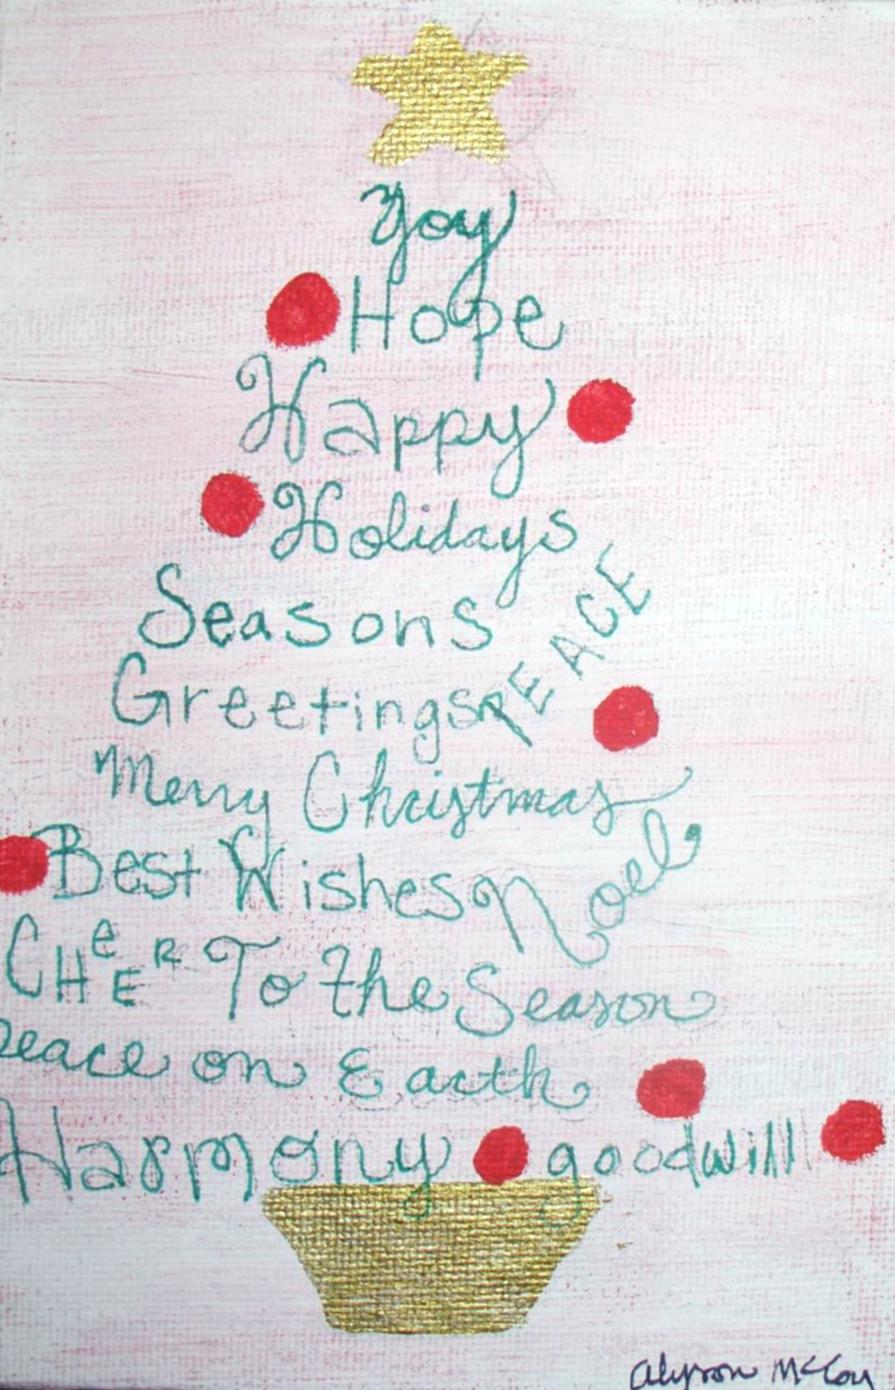 Joy
Hope
Happy
Holidays
Seasons
Greetings PEACE
Merry Christmas
Best Wishes Noel
CHeER To the Season
Peace on Earth
Harmony goodwill
Alyson McCoy